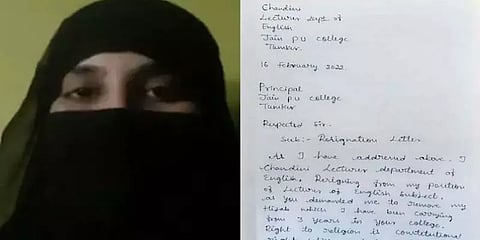 Chandini
Lecturer Dept of
English
Jain PU college
Tumkur.
16 February 2022.
Principal
Jain PU college
Tumkur
Respected Sir.
Sub:- Resignation Letter
As I have addressed above. I
Chandini Lecturer department of
English. Resigning from my position
of Lecturer of English Subject.
as you demanded me to remove my
Hijab which I have been carrying
from 3 years in your college.
Right to religion is constitutional